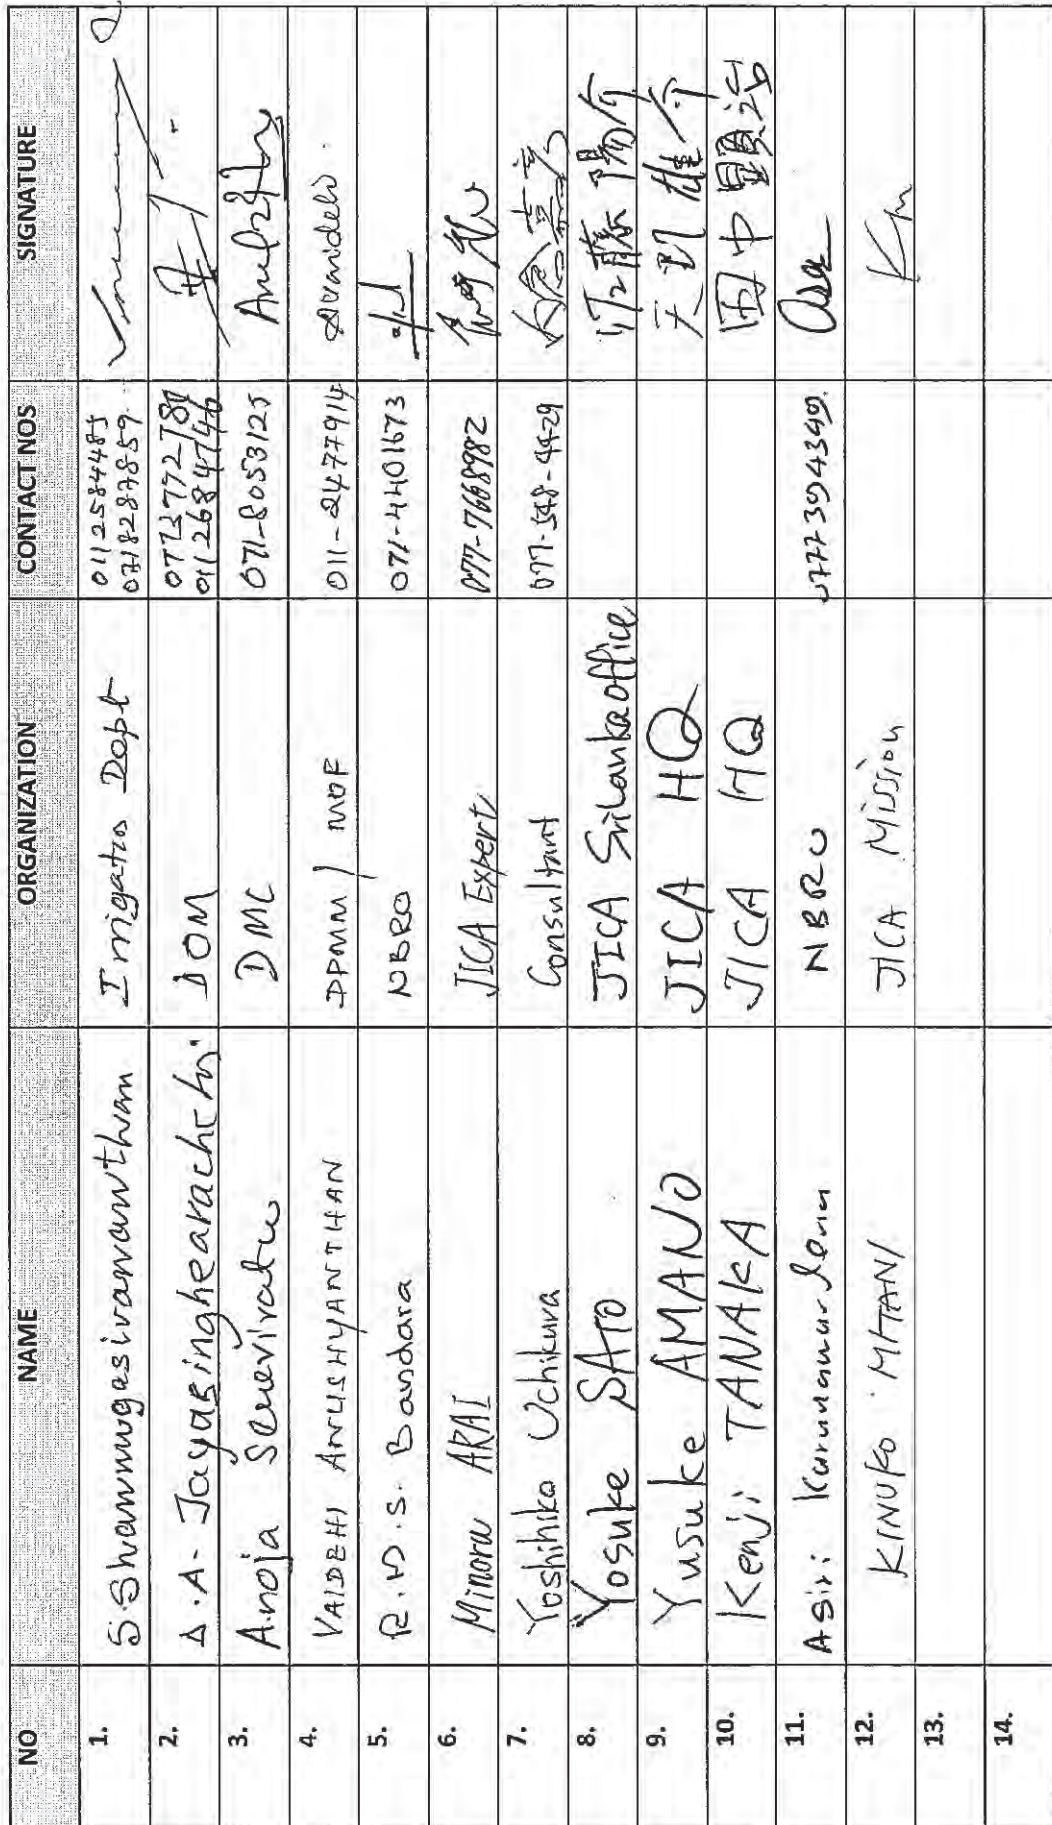 NO NAME ORGANIZATION CONTACT NOS SIGNATURE
1. S. Shanmugasivananthan Irrigatio Dept 0112584485
0718287859
2. A. A. Jayasinghearachchi DOM 0773792780
0112684746
3. Anoja Seneviratne DMC 071-8053125
4. VAIDEHI ANUSHYANTHAN DPMM / MOF 011-2477914
5. R.M.S. Bandara NBRO 071-4401673
6. Minoru ARAI JICA Expert 077-7668982
7. Yoshihiko Uchikura Consultant 077-548-4429
8. Yosuke SATO JICA SriLanka office 佐藤陽介
9. Yusuke AMANO JICA HQ 天野雄介
10. Kenji TANAKA JICA HQ 田中顕治
11. Asiri NBRO 0777394349
12. KINUKO MITANI JICA Mission Km
13.
14.